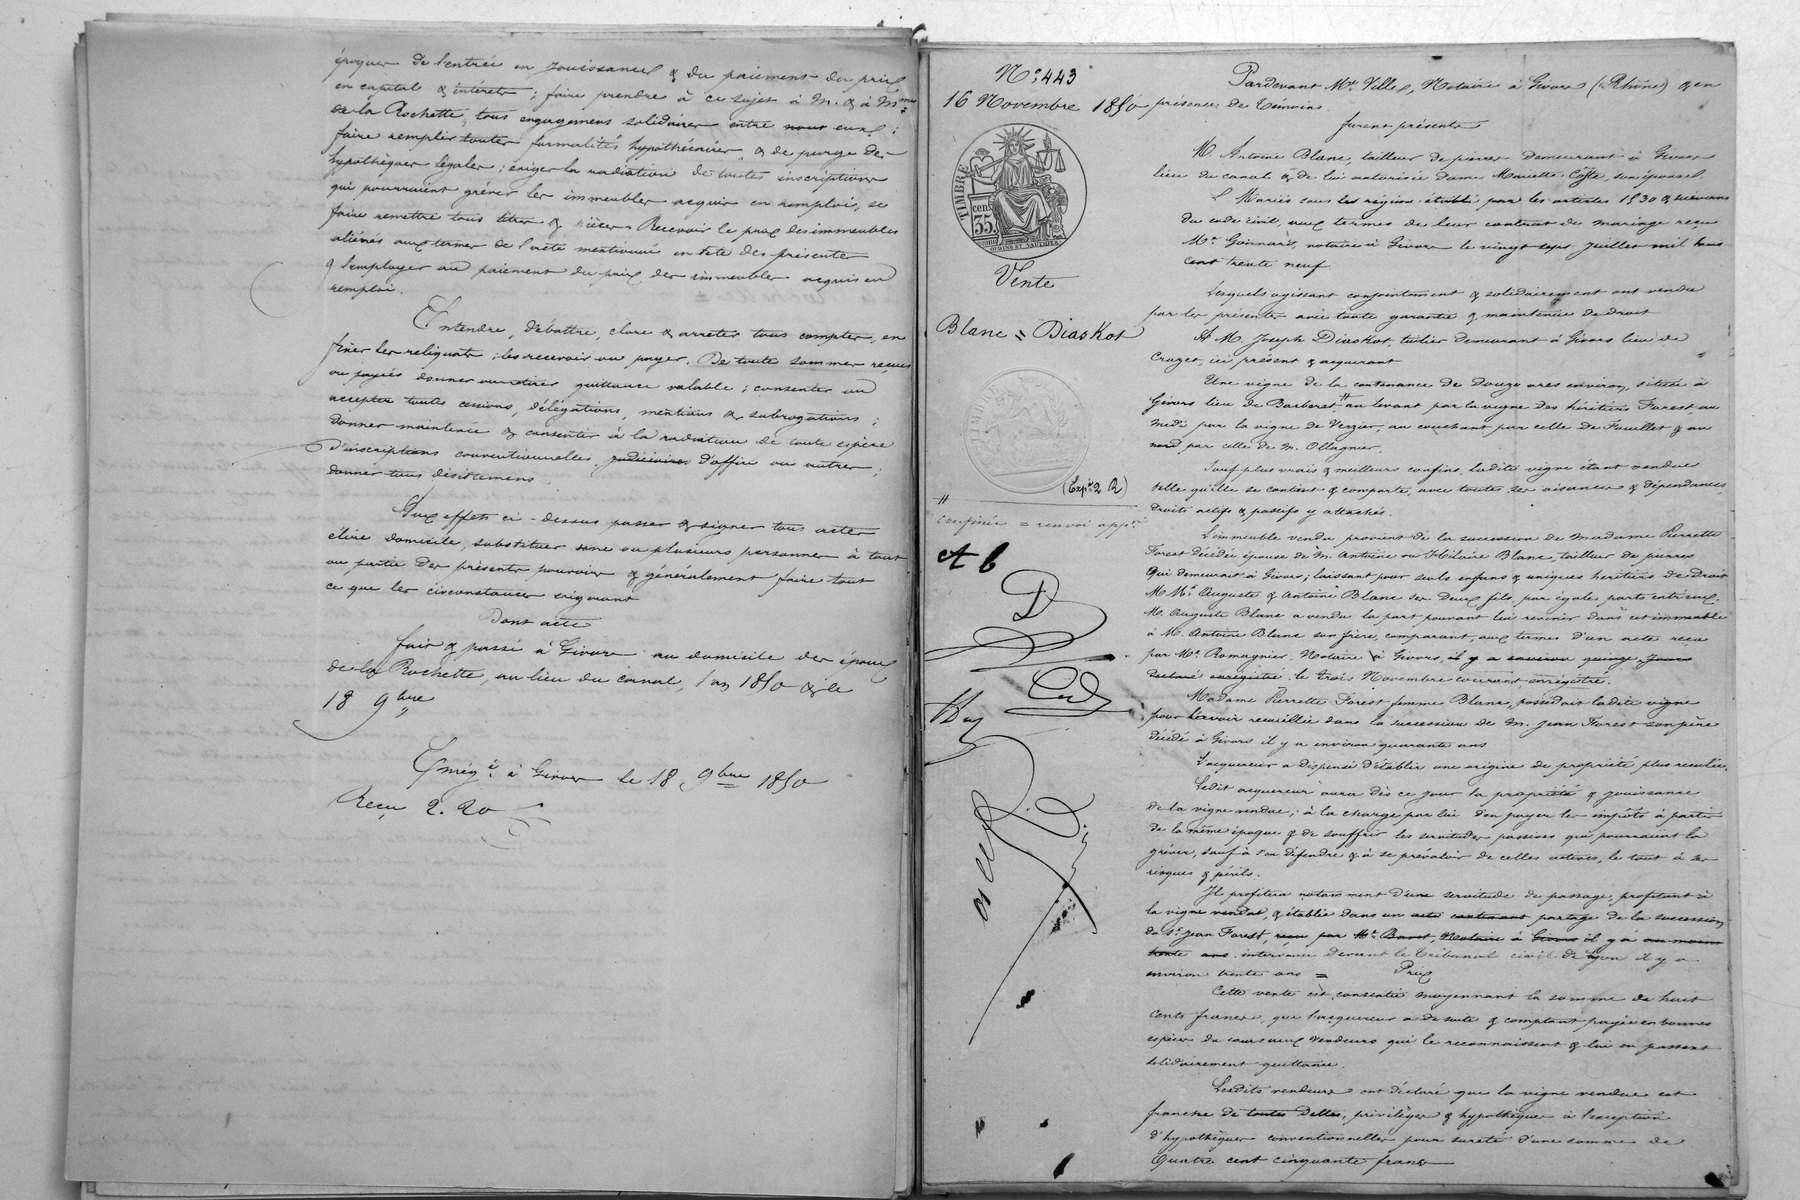 époques de l'entrée en jouissance & du paiement du prix
en capital & intérêts ; faire prendre à ce sujet à M. & à Mme
de la Rochette, tous engagemens solidaires entre nous eux ;
faire remplir toutes formalités hypothécaires & de purge des
hypothèques légales ; exiger la radiation de toutes inscriptions
qui pourraient grêver les immeubles acquis en remploi, se
faire remettre tous titres & pièces. Recevoir le prix des immeubles
aliénés aux termes de l'acte mentionné en tête des présentes
& l'employer au paiement du prix des immeubles acquis en
remploi.
Entendre, débattre, clore & arrêter tous comptes, en
fixer les reliquats ; les recevoir ou payer. De toute somme reçues
ou payés donner ou retirer quittance valable ; consentir ou
accepter toutes cessions, délégations, mentions & subrogations ;
donner mainlevée & consentir à la radiation de toute espèce
d'inscriptions conventionnelles, judiciaires d'office ou autres ;
donner tous désistemens
Aux effets ci-dessus passer & signer tous actes
élire domicile, substituer une ou plusieurs personnes à tout
ou partie des présents pouvoirs & généralement faire tout
ce que les circonstances exigeront
Dont acte
fait & passé à Givors au domicile des époux
de la Rochette, au lieu du canal, l'an 1850 & le
18 9bre
Enregé à Givors le 18 9bre 1850
Reçu 2. 20
No 443
16 Novembre 1850
TIMBRE
cen.
35
Vente
Blanc = Diaskot
(Expon 2 R)
#
confinée = renvoi appé
A b
Pardevant Me Ville, Notaire à Givors (Rhône) & en
présence de témoins
furent présents
M. Antoine Blanc, tailleur de pierres demeurant à Givors
lieu du canal & de lui autorisée Dame Mariette Coste, son épouse.
Mariés sous le régime établi par les articles 1530 & suivans
du code civil, aux termes de leur contrat de mariage reçu
Me Goinnard, notaire à Givors le vingt sept Juillet mil huit
cent trente neuf
Lesquels agissant conjointement & solidairement ont vendu
par les présentes avec toute garantie & maintenue de droit
A M. Joseph Diaskot, tuilier demeurant à Givors lieu de
Crozet, ici présent & acquérant
Une vigne de la contenance de Douze ares environ, située à
Givors lieu de Barberet, # au levant par la vigne des héritiers Forest au
midi par la vigne de Venzier, au couchant par celle de Fouillet & au
nord par celle de M. Ollagnier.
Sauf plus vrais & meilleurs confins, ladite vigne étant vendue
telle qu'elle se contient & comporte, avec toutes ses aisances & dépendances,
droits actifs & passifs y attachés.
L'immeuble vendu provient de la succession de madame Pierrette
Forest décédée épouse de M. Antoine ou Hilaire Blanc, tailleur de pierres
qui demeurait à Givors ; laissant pour seuls enfans & uniques héritiers de droit
M. Mrs Auguste & Antoine Blanc ses deux fils, par égales parts entr'eux.
M. Auguste Blanc a vendu la part pouvant lui revenir dans cet immeuble
à M. Antoine Blanc son frère, comparant, aux termes d'un acte reçu
par Me Romagnier, Notaire à Givors, il y a environ quinze jours
déclaré enregistré le trois Novembre courant enregistré.
Madame Pierrette Forest femme Blanc, possédait ladite vigne
pour l'avoir recueillie dans la succession de M. Jean Forest son père
décédé à Givors il y a environ quarante ans
L'acquéreur a dispensé d'établir une origine de propriété plus reculée.
Ledit acquéreur aura dès ce jour la propriété & jouissance
de la vigne vendue ; à la charge par lui d'en payer les impôts à partir
de la même époque & de souffrir les servitudes passives qui pourraient la
gréver, sauf à s'en défendre & à se prévaloir de celles actives, le tout à ses
risques & périls.
Il profitera notamment d'une servitude de passage, profitant à
la vigne vendue, & établie dans un acte contenant partage de la succession
du sr Jean Forest, reçu par Me Banet, Notaire à Givors il y a au moins
trente ans intervenu devant le Tribunal civil de Lyon il y a
environ trente ans = Prix
Cette vente est consentie moyennant la somme de huit
cents francs, que l'acquéreur a de suite & comptant payée en bonnes
espèces du cours aux vendeurs qui le reconnaissent & lui en passent
solidairement quittance.
Lesdits vendeurs ont déclaré que la vigne vendue est
franche de toutes Dettes, privilèges & hypothèques à l'exception
d'hypothèques conventionnelles pour sureté d'une somme de
Quatre cent cinquante francs